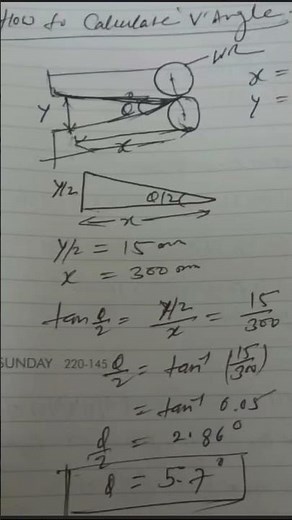 How to Calculate 'V' Angle
WR
x =
y =
Y
θ
x
Y/2
θ/2
x
Y/2 = 15 cm
x = 300 cm
tan θ/2 = Y/2 / x = 15/300
SUNDAY 220-145 θ/2 = tan⁻¹ (15/300)
= tan⁻¹ 0.05
θ/2 = 2.86°
θ = 5.7°